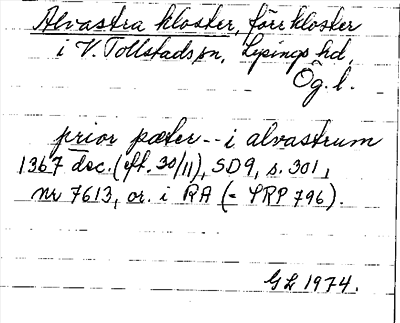 Alvastra kloster, förr kloster
i V. Tollstads sn, Lysings hd,
Ög. l.
prior pæter -- i alvastrum
1367 dec. (eft. 30/11), SD9, s. 301,
nr 7613, or. i RA (= SRP 796).
GL 1974.